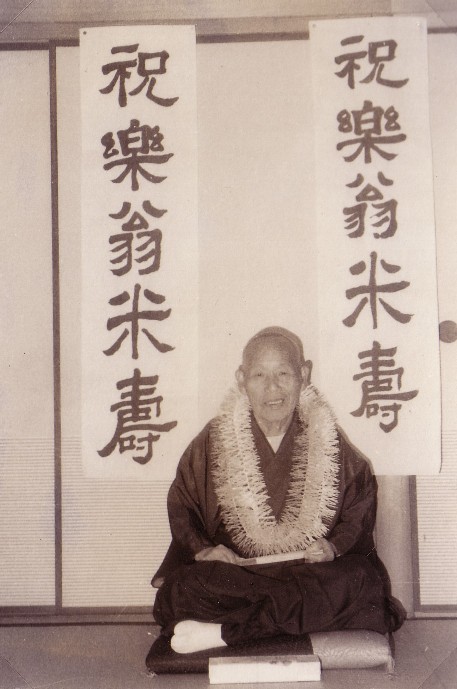 祝樂翁米壽
祝樂翁米壽